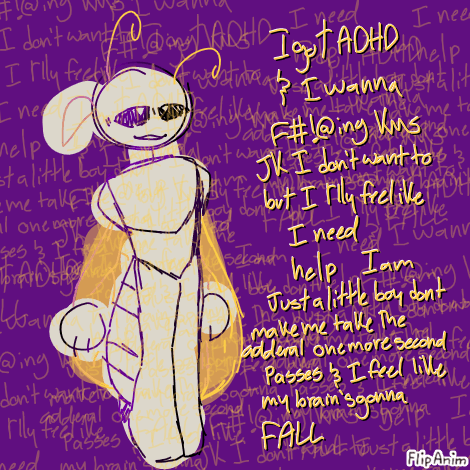 I got ADHD
& I wanna
F#!@ing Kms
JK I don't want to
but I rlly feel like
I need
help I am
Just a little boy dont
make me take the
adderal one more second
Passes & I feel like
my brain's gonna
FALL
FlipAnim